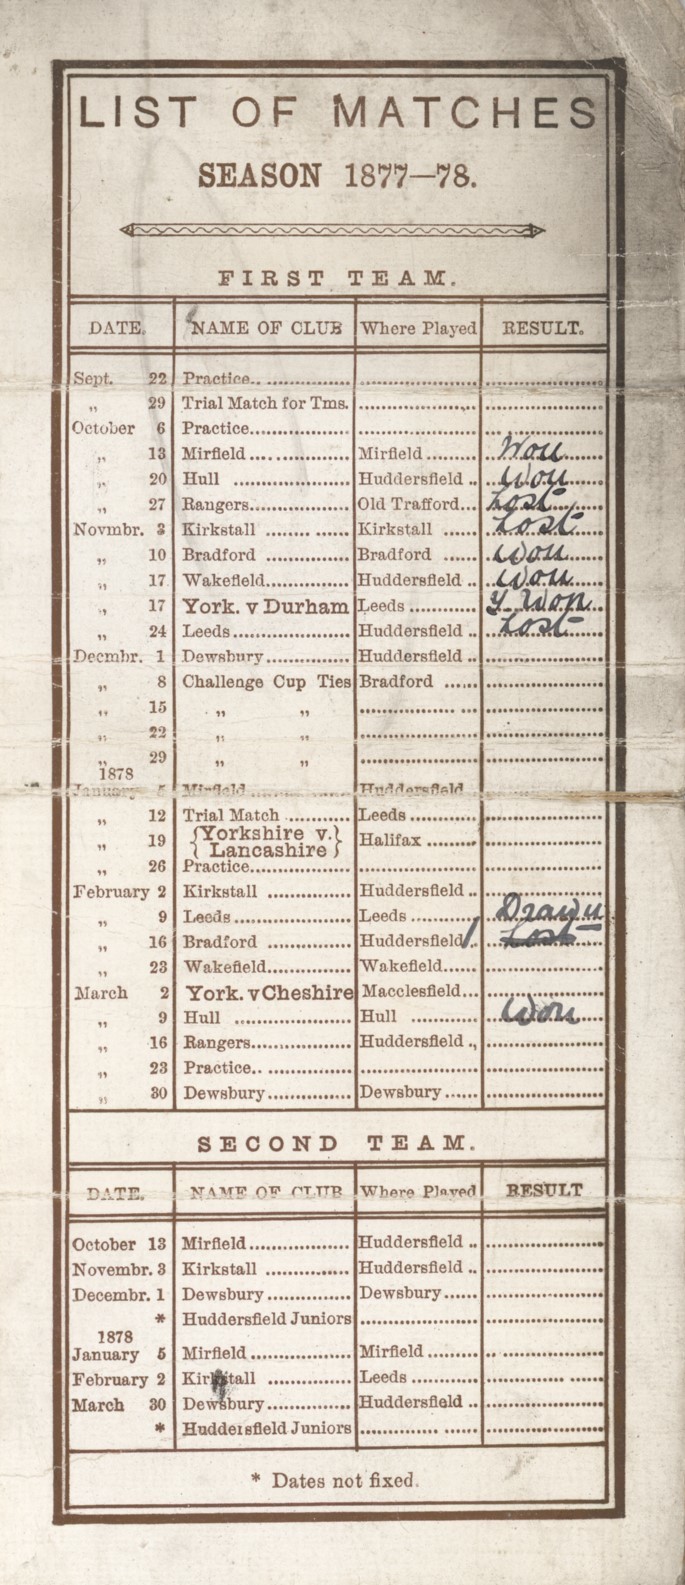 LIST OF MATCHES
SEASON 1877—78.
FIRST TEAM.
DATE. NAME OF CLUB Where Played RESULT.
Sept. 22 Practice..
„ 29 Trial Match for Tms.
October 6 Practice
„ 13 Mirfield Mirfield Won
„ 20 Hull Huddersfield Won
„ 27 Rangers Old Trafford Lost
Novmbr. 3 Kirkstall Kirkstall Lost
„ 10 Bradford Bradford Won
„ 17 Wakefield Huddersfield Won
„ 17 York. v Durham Leeds Y Won
„ 24 Leeds Huddersfield Lost
Decmbr. 1 Dewsbury Huddersfield
„ 8 Challenge Cup Ties Bradford
„ 15 „ „
„ 22 „ „
„ 29 „ „
1878
January 5 Mirfield Huddersfield
„ 12 Trial Match Leeds
„ 19 {Yorkshire v. Lancashire} Halifax
„ 26 Practice
February 2 Kirkstall Huddersfield
„ 9 Leeds Leeds Drawn
„ 16 Bradford Huddersfield Lost
„ 23 Wakefield Wakefield
March 2 York. v Cheshire Macclesfield
„ 9 Hull Hull Won
„ 16 Rangers Huddersfield
„ 23 Practice
„ 30 Dewsbury Dewsbury
SECOND TEAM.
DATE. NAME OF CLUB Where Played RESULT
October 13 Mirfield Huddersfield
Novembr. 3 Kirkstall Huddersfield
Decembr. 1 Dewsbury Dewsbury
* Huddersfield Juniors
1878
January 5 Mirfield Mirfield
February 2 Kirkstall Leeds
March 30 Dewsbury Huddersfield
* Huddersfield Juniors
* Dates not fixed.